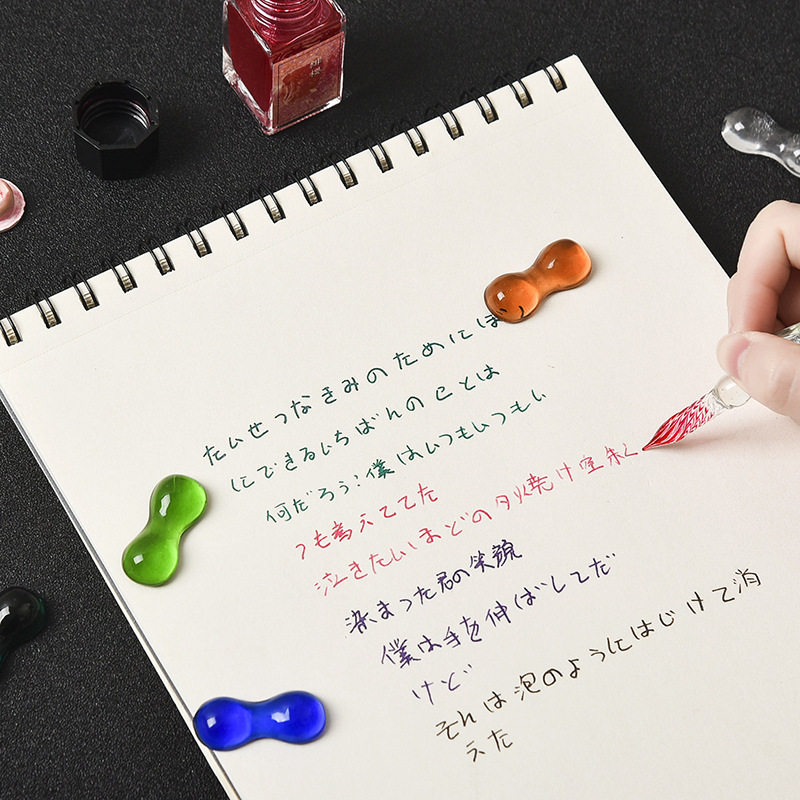 緋櫻
たいせつなきみのためにぼ
くにできるいちばんのことは
何だろう?僕はいつもいつもい
つも考えててた
泣きたいほどの夕焼け空朱く
染まった君の笑顔
僕は手を伸ばしてだ
けど
それは泡のようにはじけて消
えた